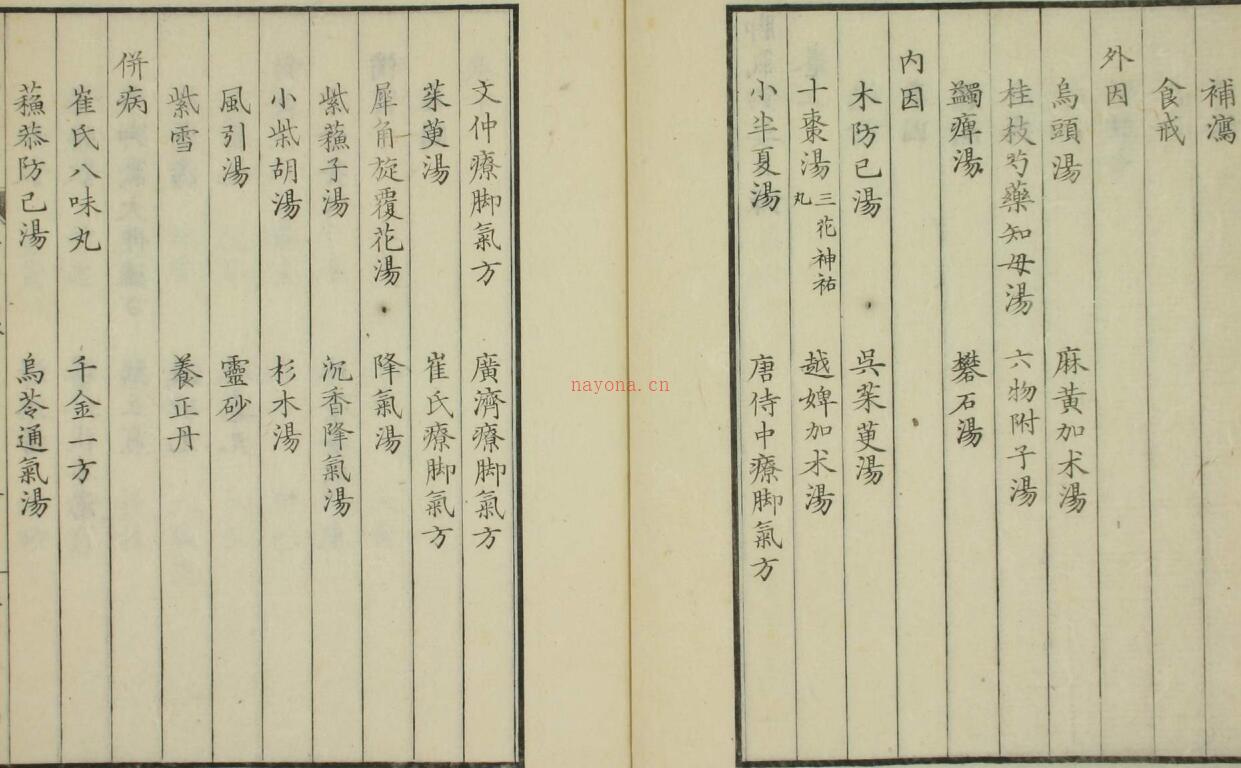 補瀉
食戒
外因
烏頭湯 麻黃加朮湯
桂枝芍藥知母湯 六物附子湯
蠲痺湯 礬石湯
内因
木防已湯 吳茱萸湯
十棗湯 三花神祐丸 越婢加朮湯
小半夏湯 唐侍中療脚氣方
文仲療脚氣方 廣濟療脚氣方
茱萸湯 崔氏療脚氣方
犀角旋覆花湯 降氣湯
紫蘓子湯 沉香降氣湯
小柴胡湯 杉木湯
風引湯 靈砂
紫雪 養正丹
併病
崔氏八味丸 千金一方
蘓恭防已湯 烏苓通氣湯
nayona.cn